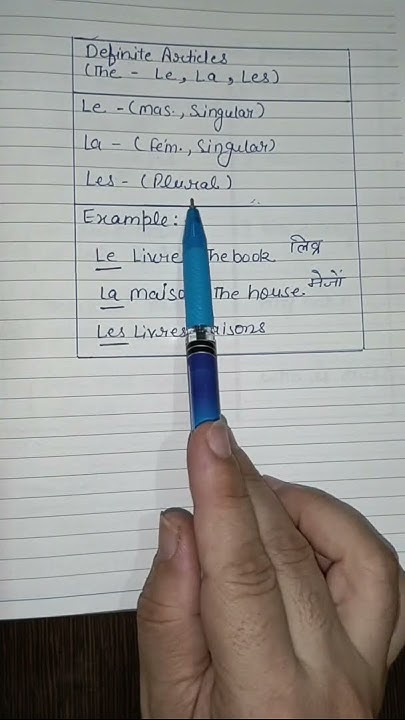 Definite Articles
(The - Le, La, Les)
Le - (mas., Singular)
La - (fem., Singular)
Les - (Plural)
Example:
Le Livre The book लिव्र
La maison The house. मेजों
Les Livres